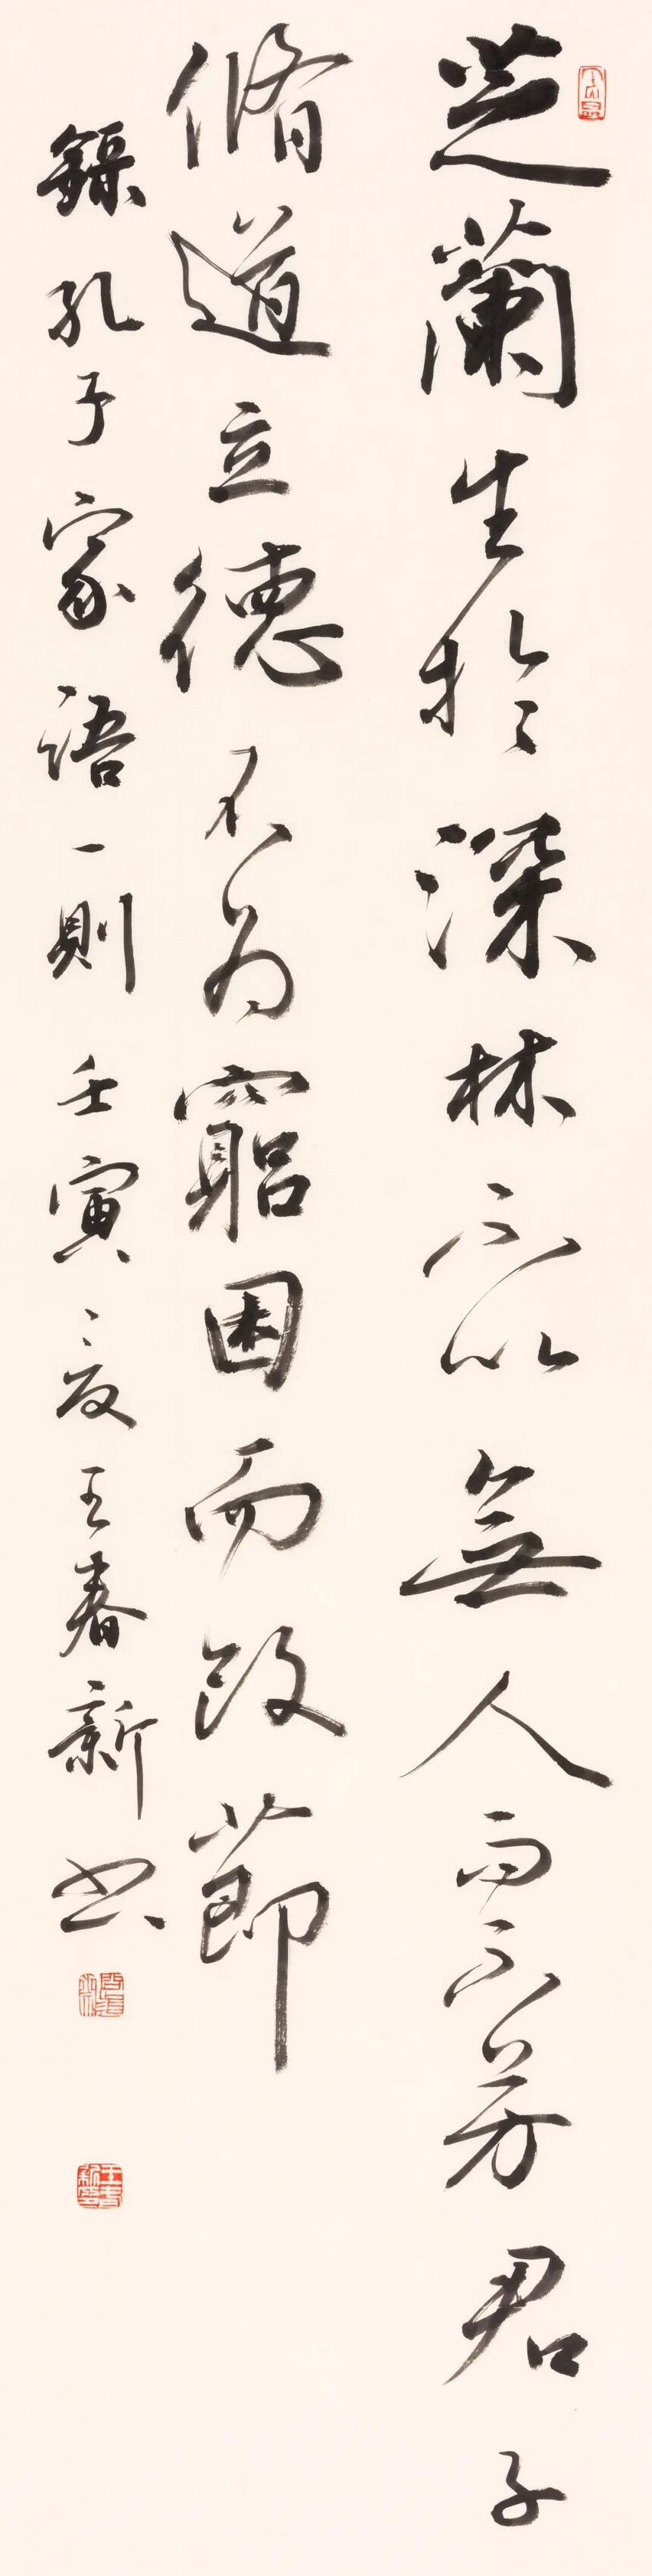 芝蘭生於深林不以無人而不芳君子
脩道立德不為窮困而改節
錄孔子家語一則壬寅之夏王春新書